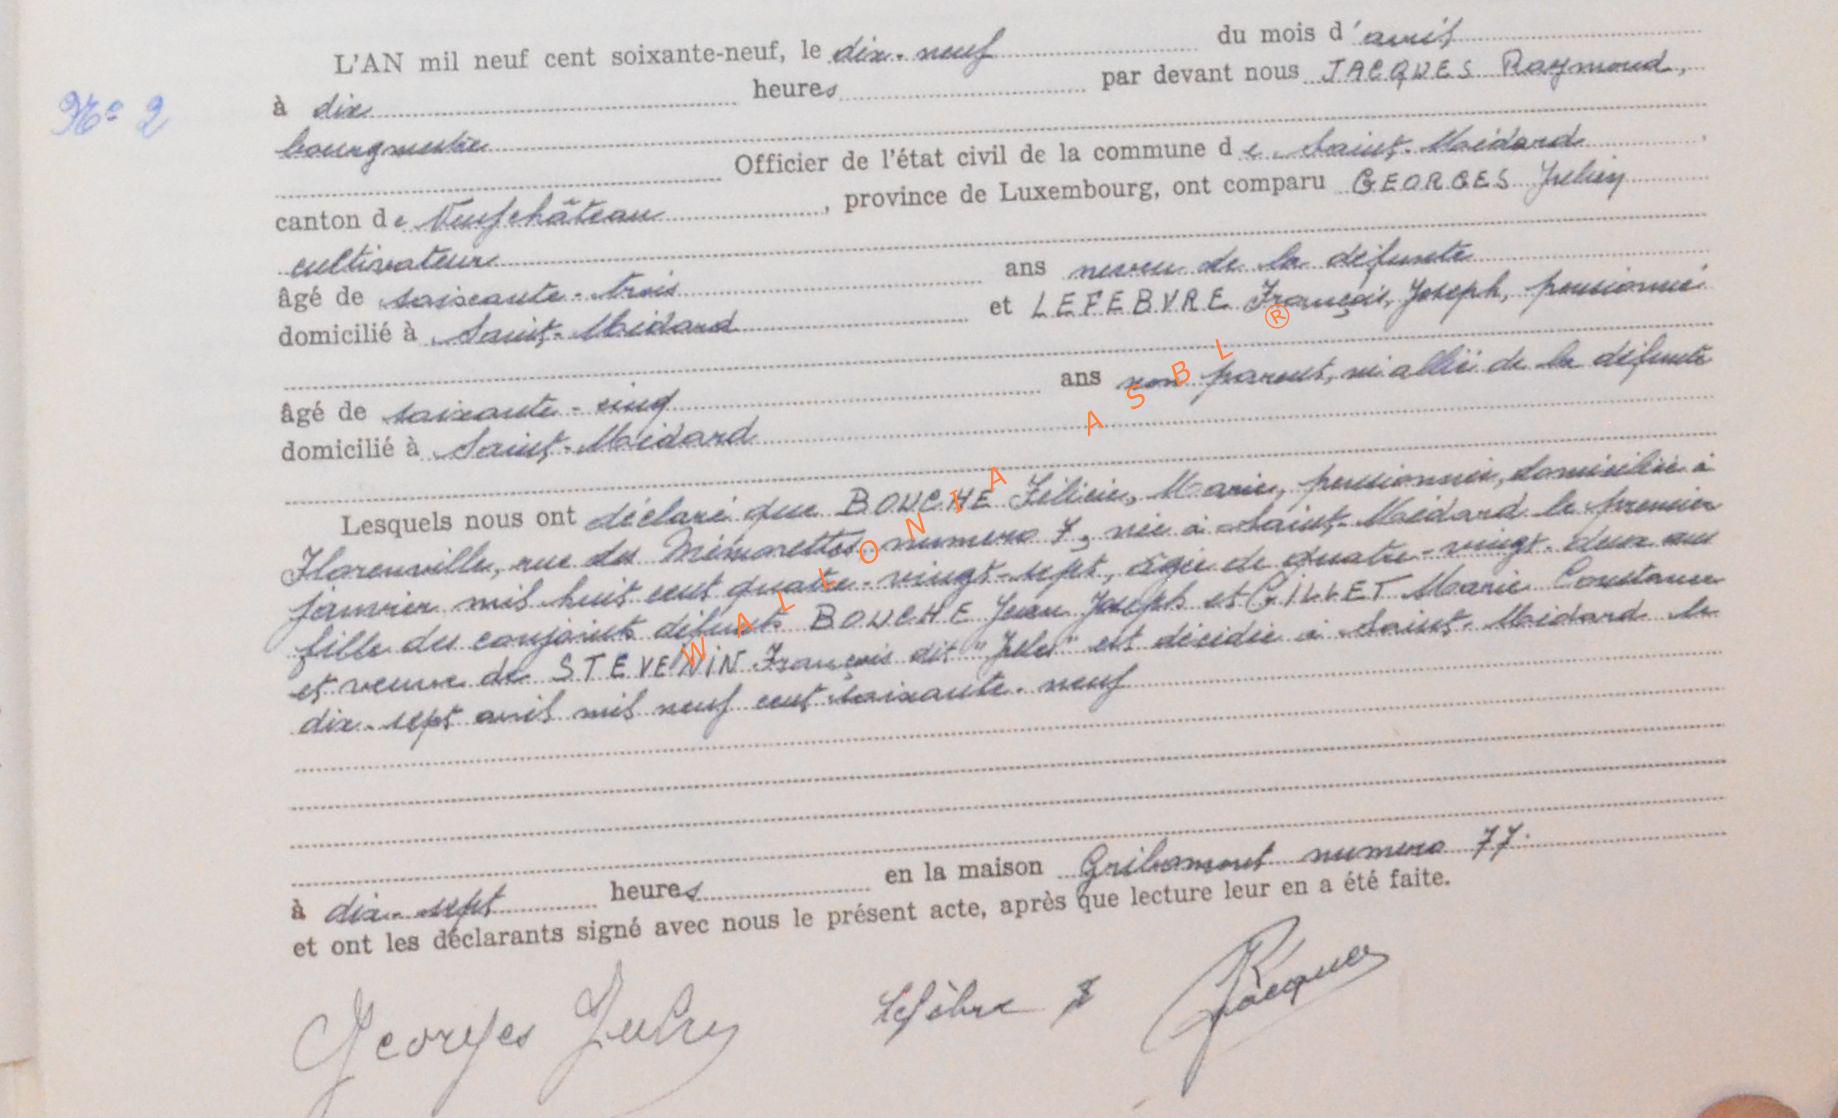 L'AN mil neuf cent soixante-neuf, le dix-neuf du mois d'avril
N° 2
à dix heures par devant nous JACQUES Raymond,
bourgmestre
Officier de l'état civil de la commune de Saint-Médard
canton de Neufchâteau, province de Luxembourg, ont comparu GEORGES Julien
cultivateur
âgé de soixante-trois ans neveu de la défunte
domicilié à Saint-Médard et LEFEBVRE François, Joseph, pensionné
âgé de soixante-cinq ans non parent, ni allié de la défunte
domicilié à Saint-Médard
Lesquels nous ont déclaré que BOUCHE Félicie, Marie, pensionnée, domiciliée à
Florenville, rue des Miniorettes numéro 7, née à Saint-Médard le premier
janvier mil huit cent quatre-vingt-sept, âgée de quatre-vingt-deux ans
fille des conjoints défunts BOUCHE Jean Joseph et GILLET Marie Constance
et veuve de STEVENIN François dit "Jules" est décédée à Saint-Médard le
dix-sept avril mil neuf cent soixante-neuf
à dix-sept heures en la maison Gribomont numéro 77.
et ont les déclarants signé avec nous le présent acte, après que lecture leur en a été faite.
Georges Julien Lefèbvre F Jacques
WALLONIA ASBL ®